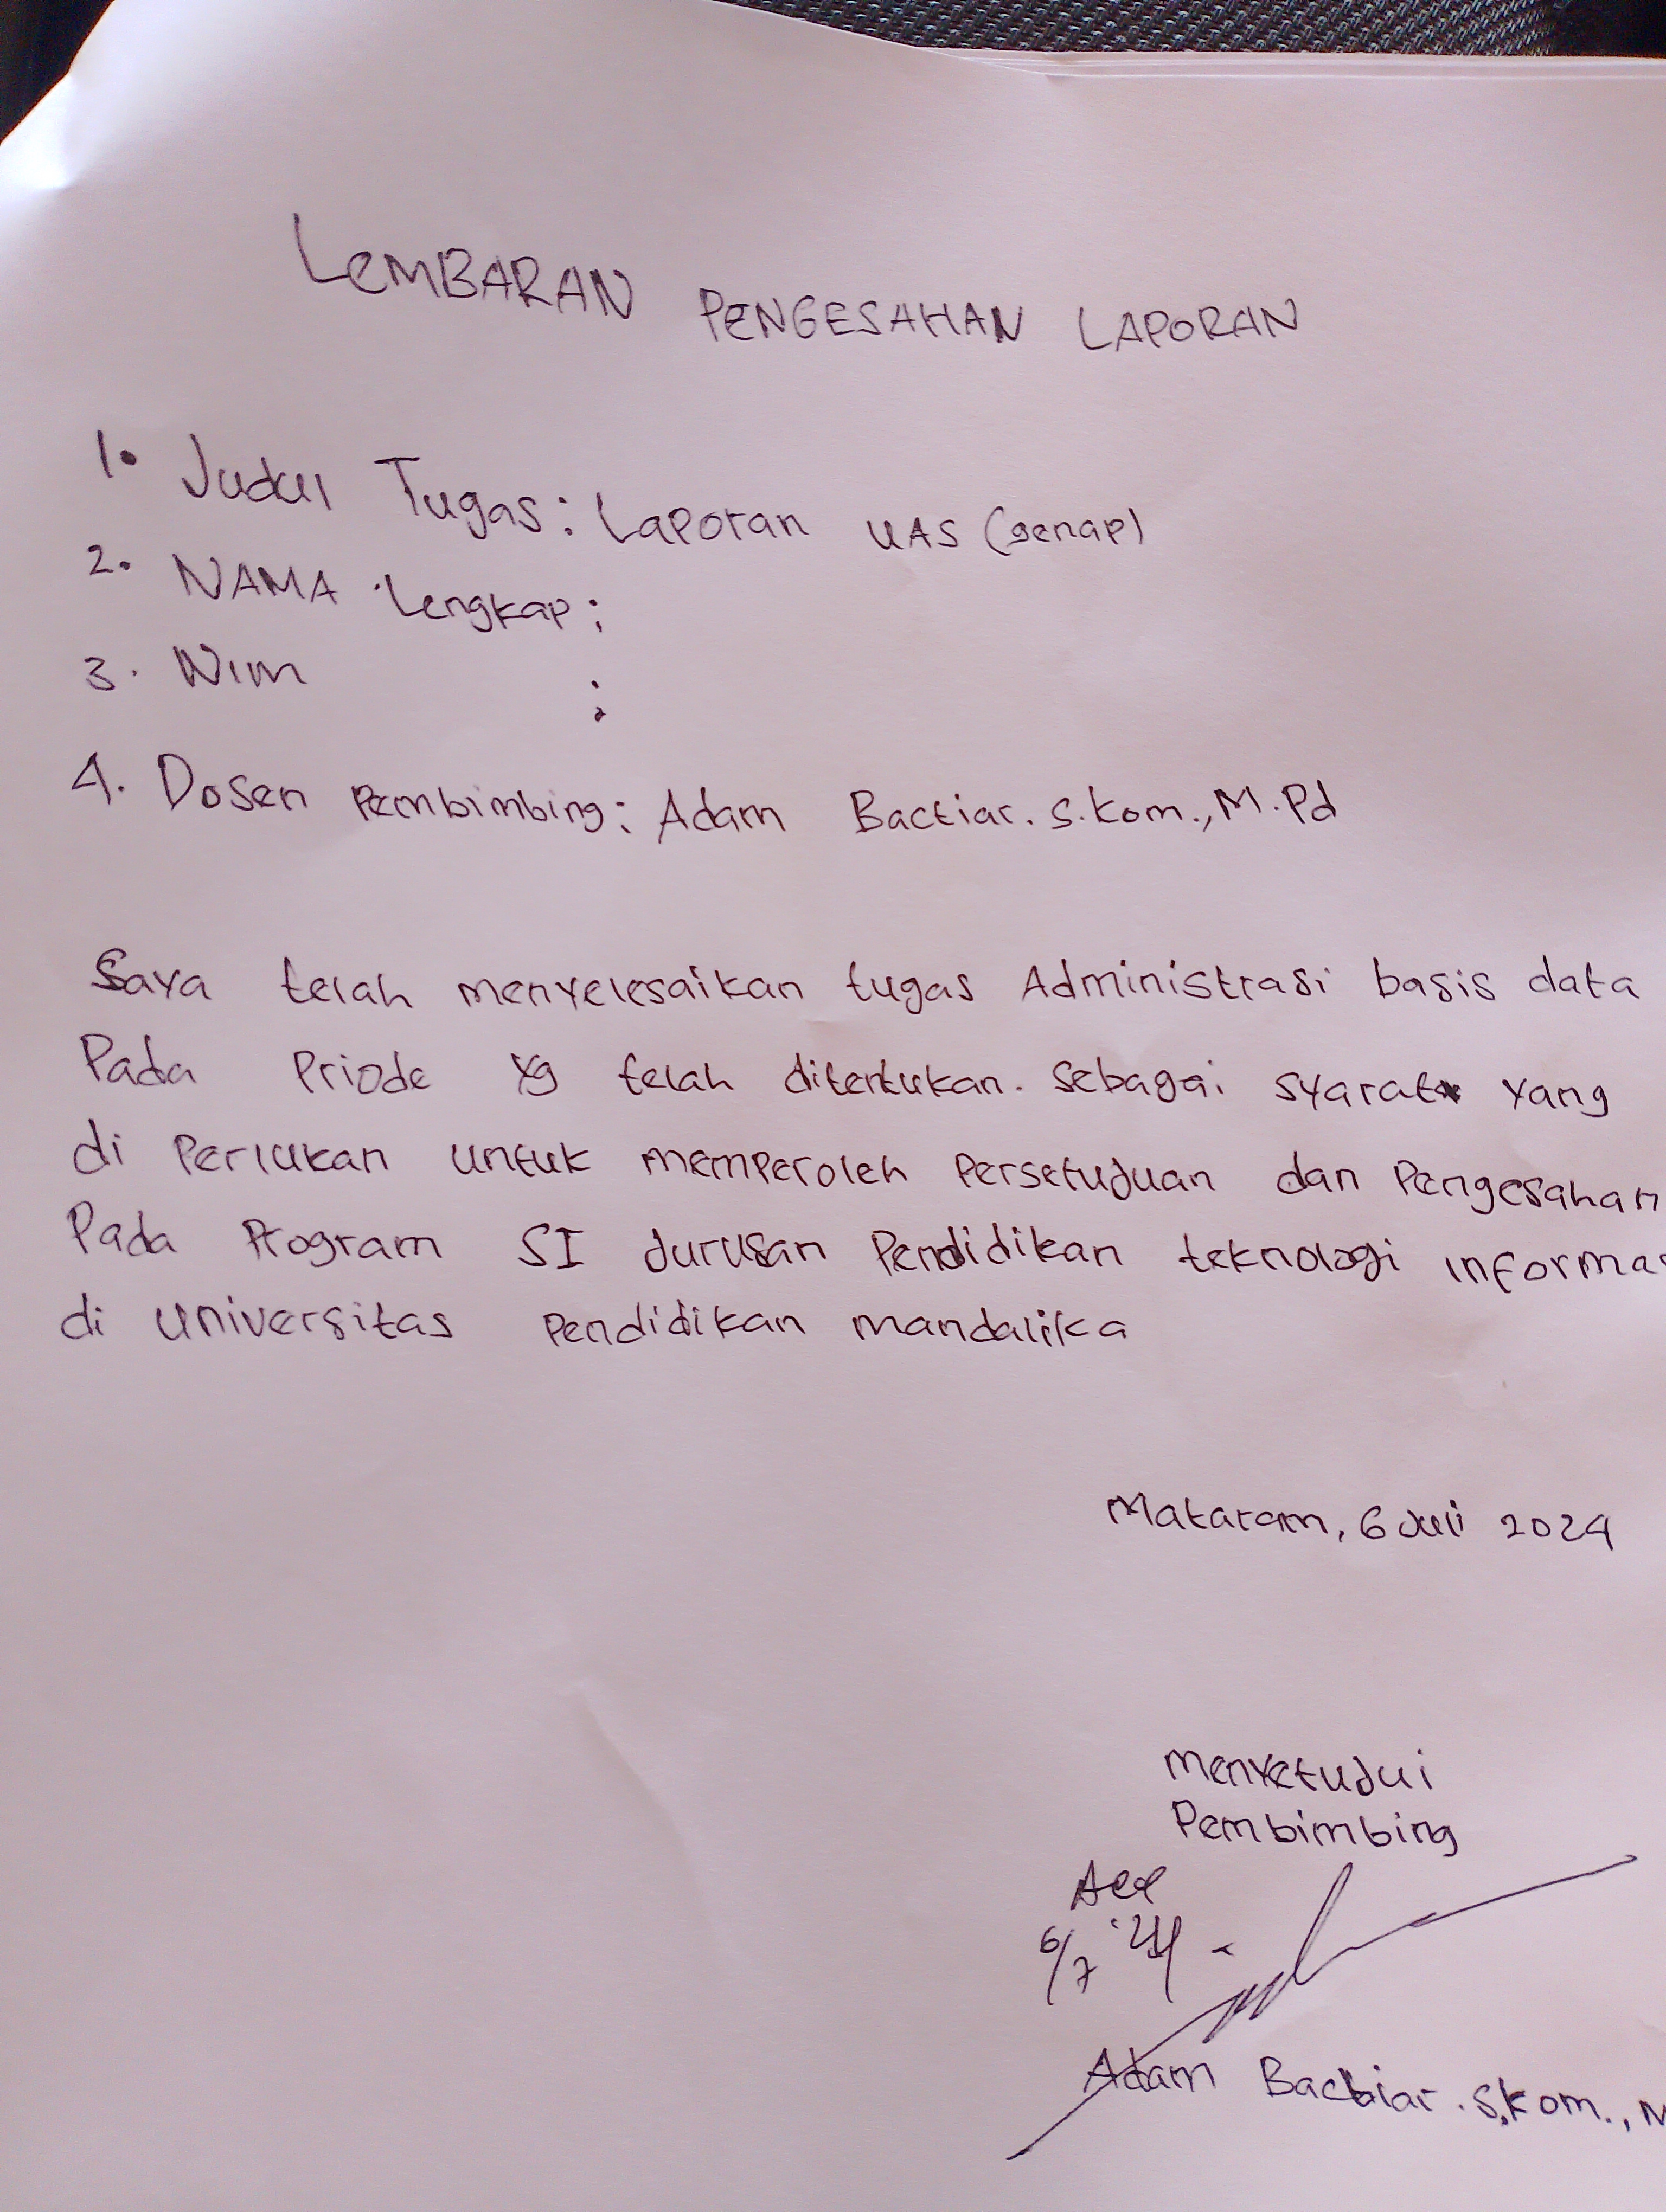 LEMBARAN PENGESAHAN LAPORAN
1. Judul Tugas: Laporan UAS (genap)
2. NAMA Lengkap :
3. Nim :
4. Dosen Pembimbing: Adam Bactiar. S.Kom., M.Pd
Saya telah menyelesaikan tugas Administrasi basis data
Pada Priode yg telah ditentukan. Sebagai syarat yang
di Perlukan untuk memperoleh Persetujuan dan Pengesahan
Pada Program SI Jurusan Pendidikan teknologi informas
di Universitas Pendidikan mandalika
Mataram, 6 Juli 2024
Menyetujui
Pembimbing
Acc
6/7 '24
Adam Bactiar. S.Kom., M